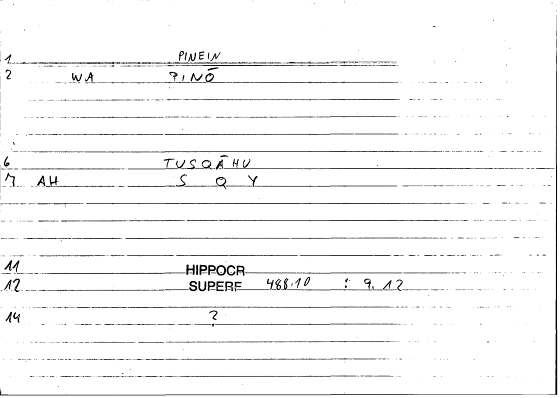 1 PINEIN
2 WA PINŌ
6 TUSQĀHU
7 AH S Q Y
11 HIPPOCR
12 SUPERF 488.10 : 9. 12
14 ?